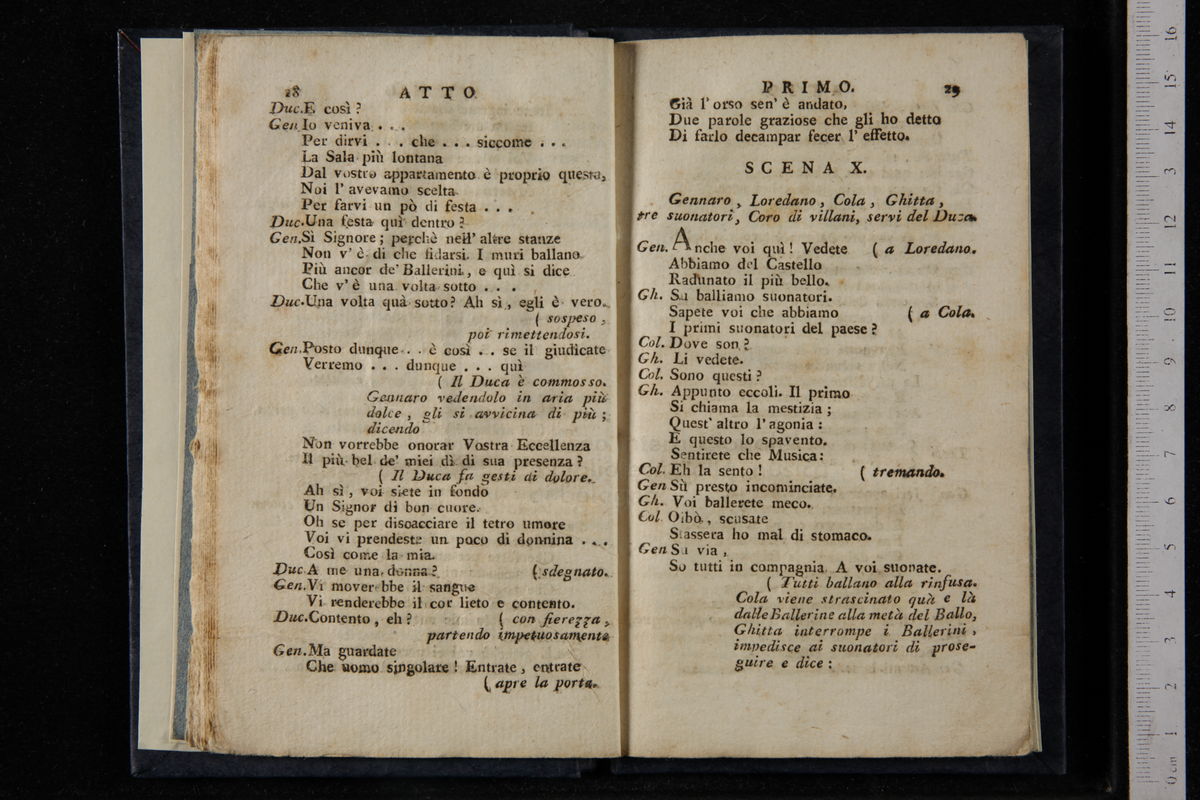 28 ATTO
Duc. E così?
Gen. Io veniva . . .
Per dirvi . . . che . . . siccome . . .
La Sala più lontana
Dal vostro appartamento è proprio questa,
Noi l' avevamo scelta
Per farvi un pò di festa . . .
Duc. Una festa quì dentro?
Gen. Sì Signore; perchè nell' altre stanze
Non v' è di che fidarsi. I muri ballano
Più ancor de' Ballerini, e quì si dice
Che v' è una volta sotto . . .
Duc. Una volta quà sotto? Ah sì, egli è vero.
( sospeso,
poi rimettendosi.
Gen. Posto dunque . . è così . . se il giudicate
Verremo . . . dunque . . . quì
( Il Duca è commosso.
Gennaro vedendolo in aria più
dolce, gli si avvicina di più;
dicendo
Non vorrebbe onorar Vostra Eccellenza
Il più bel de' miei dì di sua presenza?
( Il Duca fa gesti di dolore.
Ah sì, voi siete in fondo
Un Signor di bon cuore.
Oh se per discacciare il tetro umore
Voi vi prendeste un poco di donnina . . .
Così come la mia.
Duc. A me una donna? ( sdegnato.
Gen. Vi moverebbe il sangue
Vi renderebbe il cor lieto e contento.
Duc. Contento, eh? ( con fierezza,
partendo impetuosamente
Gen. Ma guardate
Che uomo singolare! Entrate, entrate
( apre la porta.
PRIMO. 29
Già l' orso sen' è andato,
Due parole graziose che gli ho detto
Di farlo decampar fecer l' effetto.
SCENA X.
Gennaro, Loredano, Cola, Ghitta,
tre suonatori, Coro di villani, servi del Duca.
Gen. Anche voi quì! Vedete ( a Loredano.
Abbiamo del Castello
Radunato il più bello.
Gh. Su balliamo suonatori.
Sapete voi che abbiamo ( a Cola.
I primi suonatori del paese?
Col. Dove son?
Gh. Li vedete.
Col. Sono questi?
Gh. Appunto eccoli. Il primo
Si chiama la mestizia;
Quest' altro l' agonia:
E questo lo spavento.
Sentirete che Musica:
Col. Eh la sento! ( tremando.
Gen Sù presto incominciate.
Gh. Voi ballerete meco.
Col. Oibò, scusate
Stassera ho mal di stomaco.
Gen Su via,
So tutti in compagnia. A voi suonate.
( Tutti ballano alla rinfusa.
Cola viene strascinato quà e là
dalle Ballerine alla metà del Ballo,
Ghitta interrompe i Ballerini,
impedisce ai suonatori di prose-
guire e dice:
0 cm 1 2 3 4 5 6 7 8 9 10 11 12 13 14 15 16